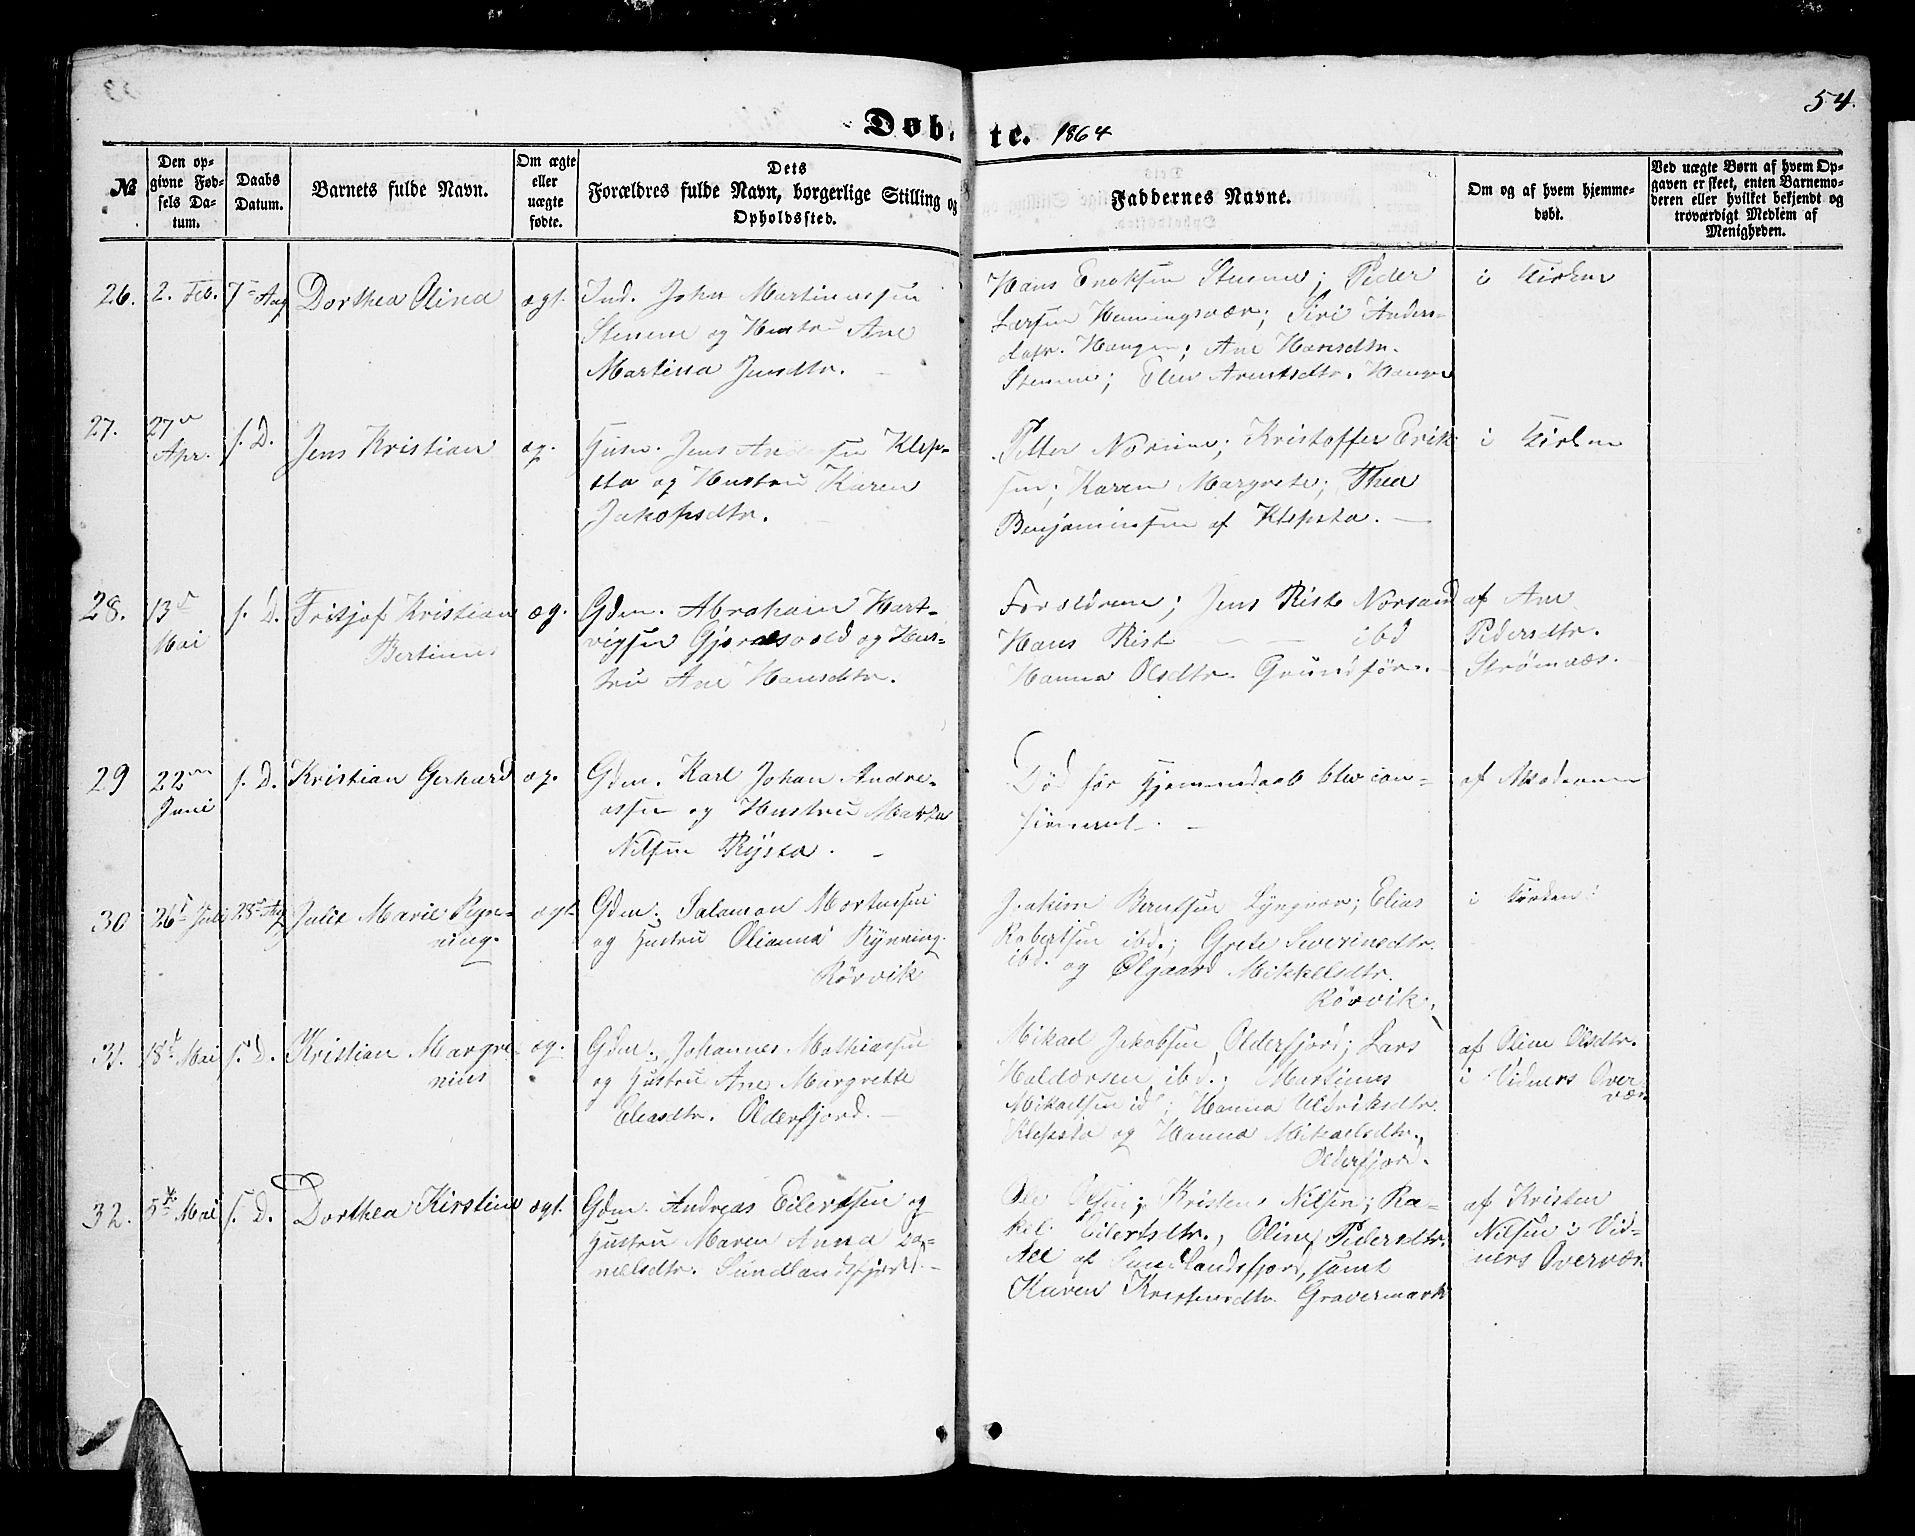 54.
Døbte. 1864
№
Den opgivne Fødsels Datum.
Daabs Datum.
Barnets fulde Navn.
Om ægte eller uægte fødte.
Dets Forældres fulde Navn, borgerlige Stilling og Opholdssted.
Faddernes Navne.
Om og af hvem hjemmedøbt.
Ved uægte Børn af hvem Opgaven er skeet, enten Barnemoderen eller hvilket bekjendt og troværdigt Medlem af Menigheden.
26.
2. Feb.
7 Aug
Dorthea Olina
ægt.
Ind. John Martinussen
Stemme og Hustru Ane
Martina Jensdtr.
Hans Enoksen Stemme; Peder
Larsen Henningsvær; Siri Anders-
datr. Haugen; Ane Hansdtr.
Stemme; Elen Arentsdtr. Haugen
i Kirken
27.
27de
Apr.
s. D.
Jens Kristian
æg.
Husm. Jens Andersen Klep-
sta og Hustru Karen
Jakobsdtr.
Petter Norum; Kristoffer Erik-
sen; Karen Margrete; Thea
Benjaminsen af Klepsta.
i Kirken
28.
13d
Mai
s. D.
Fritjof Kristian
Bertinus
æg.
Gdm. Abraham Hart-
vigsen Gjerdesvold og Hus-
tru Ane Hansdtr.
Forældrene; Jens Rist Norsand
Hans Rist — — ibd
Hanna Olsdtr. Grundfør.
af Ane
Pedersdtr.
Strømnæs.
29
22den
Juni
s. D.
Kristian Gerhard
æg.
Gdm. Karl Johan Andre-
assen og Hustru Marta
Nilsen Rysta.
Død før Hjemmedaab blev con-
firmeret.
af Moderen
30
26d Juli
28d Aug
Julie Marie Ryn-
ning.
ægt.
Gdm. Salamon Mortensen
og Hustru Olianna Rynning
Rørvik
Joakim Berntsen Lyngvær; Elias
Robertsen ibd.; Grete Severinsdtr.
ibd. og Olgaard Mikkelsdtr.
Rørvik.
i Kirken
31.
18d Mai
s. D.
Kristian Margre-
nius
æg.
Gdm. Johannes Mathiassen
og Hustru Ane Margrethe
Eliasdtr. Olderfjord.
Mikael Jakobsen Olderfjord; Lars
Haldorsen ibd.; Martinus
Mikaelsen id; Hanna Uldriksdtr.
Klepsta og Hanna Mikaelsdtr.
Olderfjord.
af Oline Olsdtr.
i Vidners Over
vær.
32.
5te Mai
s. D.
Dorthea Kirstine
ægt.
Gdm. Andreas Eilertsen og
Hustru Maren Anna Da-
nielsdtr. Sundlandsfjord.
Ole Olsen; Kristen Nilsen; Ra-
kel Eilertsdtr., Oline Pedersdtr.
Alle af Sundlandsfjord, samt
Karen Kristensdtr. Gravermark
af Kristen
Nilsen i Vid-
ners Overvær